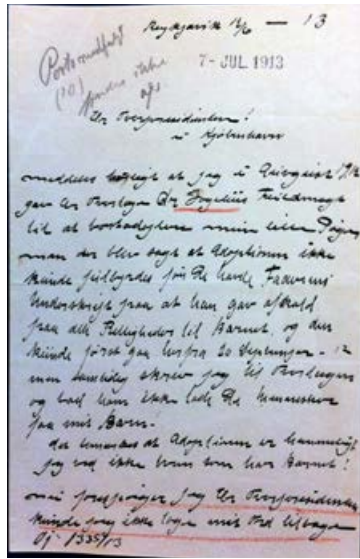 Reykjavik 13/6 — 13
7- JUL 1913
Hr Overpræsidenten!
i Kjøbenhavn
meddeles at jeg i
gav Hr Overlæge Dr. Fuldmagt
til at bortadoptere min lille Pige,
men der blev sagt at Adoptionen ikke
kunde fuldbyrdes før De havde Faderens
Underskrift paa at han gav afkald
paa alle Rettigheder til Barnet, og den
kunde først gaa herfra 20 September - 12
men samtidig skrev jeg til Overlægen
og bad ham ikke lade De Mennesker
faa mit Barn.
det at Adoptionen er hemmeligt
jeg ved ikke hvem som har Barnet!
nu forespørger jeg Hr Overpræsidenten
kunde jeg ikke tage mit Ord tilbage
Oj. 1335/13